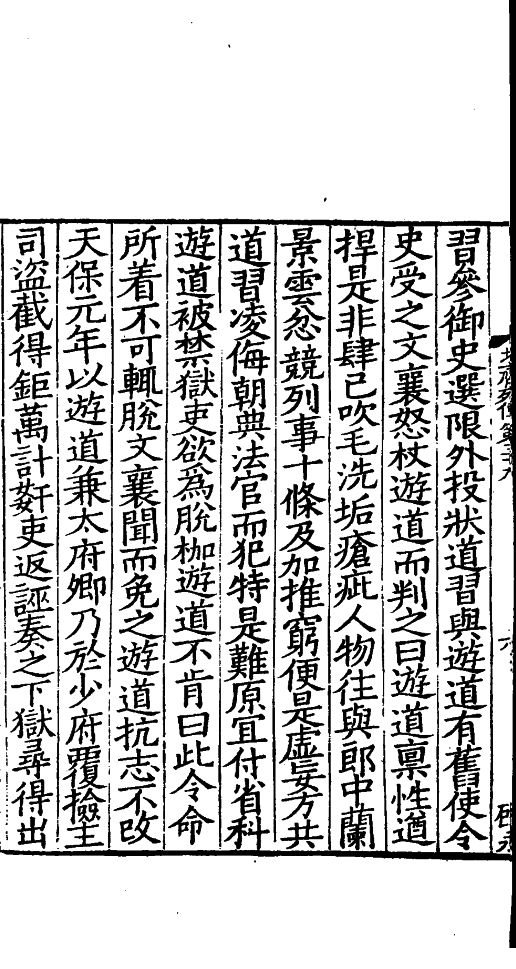 習參御史選限外投狀道習與遊道有舊使令
史受之文襄怒杖遊道而判之曰遊道禀性遒
捍是非肆已吹毛洗垢瘡疵人物往與郎中蘭
景雲忿競列事十條及加推窮便是虛妄方共
道習凌侮朝典法官而犯特是難原宜付省科
遊道被禁獄吏欲爲脫枷遊道不肯曰此令命
所着不可輒脫文襄聞而免之遊道抗志不改
天保元年以遊道兼太府卿乃於少府覆撿主
司盜截得鉅萬計姧吏返誣奏之下獄尋得出